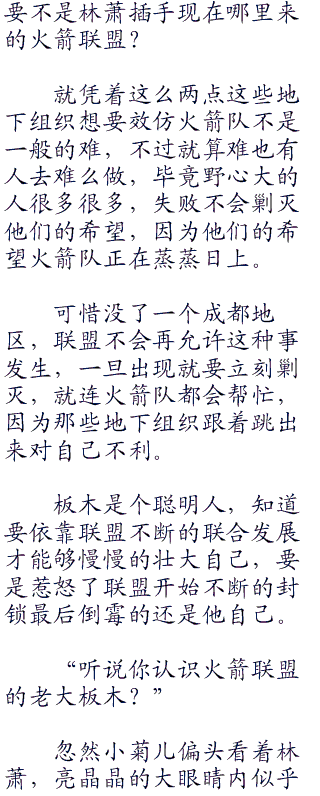 要不是林萧插手现在哪里来
的火箭联盟？
就凭着这么两点这些地
下组织想要效仿火箭队不是
一般的难，不过就算难也有
人去难么做，毕竟野心大的
人很多很多，失败不会剿灭
他们的希望，因为他们的希
望火箭队正在蒸蒸日上。
可惜没了一个成都地
区，联盟不会再允许这种事
发生，一旦出现就要立刻剿
灭，就连火箭队都会帮忙，
因为那些地下组织跟着跳出
来对自己不利。
板木是个聪明人，知道
要依靠联盟不断的联合发展
才能够慢慢的壮大自己，要
是惹怒了联盟开始不断的封
锁最后倒霉的还是他自己。
“听说你认识火箭联盟
的老大板木？”
忽然小菊儿偏头看着林
萧，亮晶晶的大眼睛内似乎